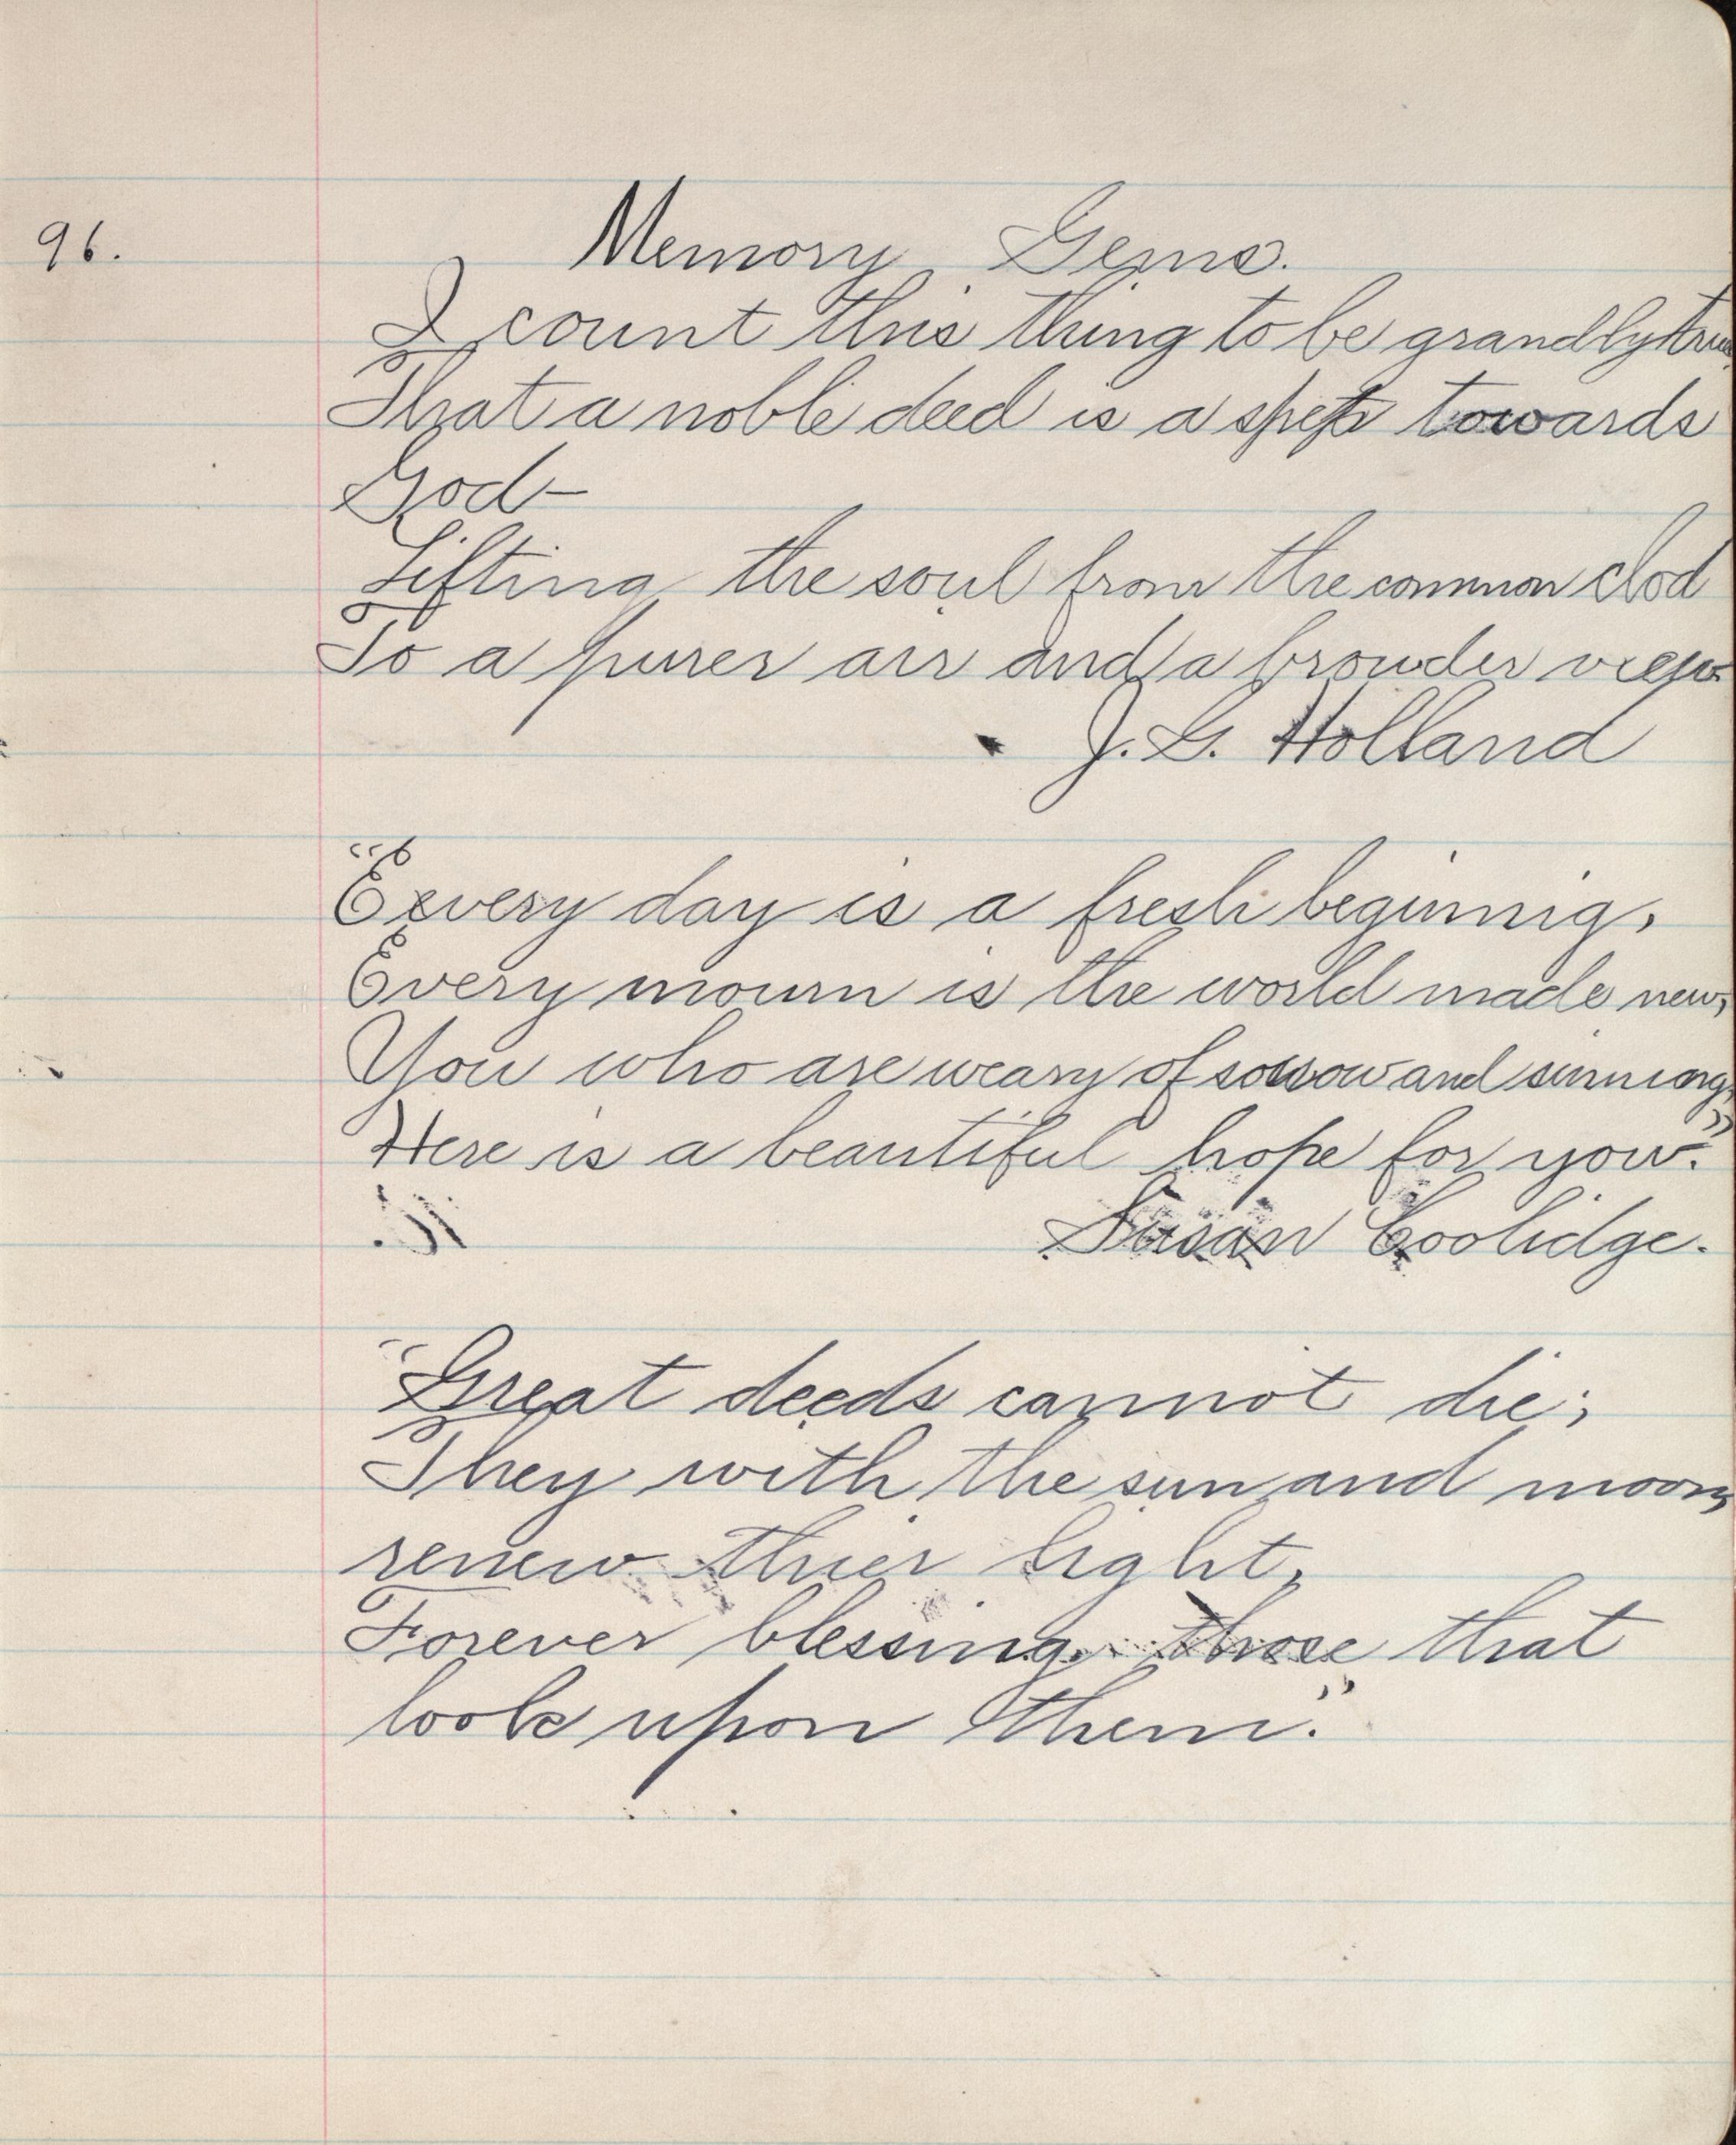 96.
Memory Gems.
I count this thing to be grandly true,
That a noble deed is a step towards
God—
Lifting the soul from the common clod
To a purer air and a browder view
J. G. Holland
"Every day is a fresh beginning,
Every mourn is the world made new,
You who are weary of sorrow and sinning,
Here is a beautiful hope for you."
Susan Coolidge.
"Great deeds cannot die;
They with the sun and moon,
renew thier light,
Forever blessing those that
look upon them."